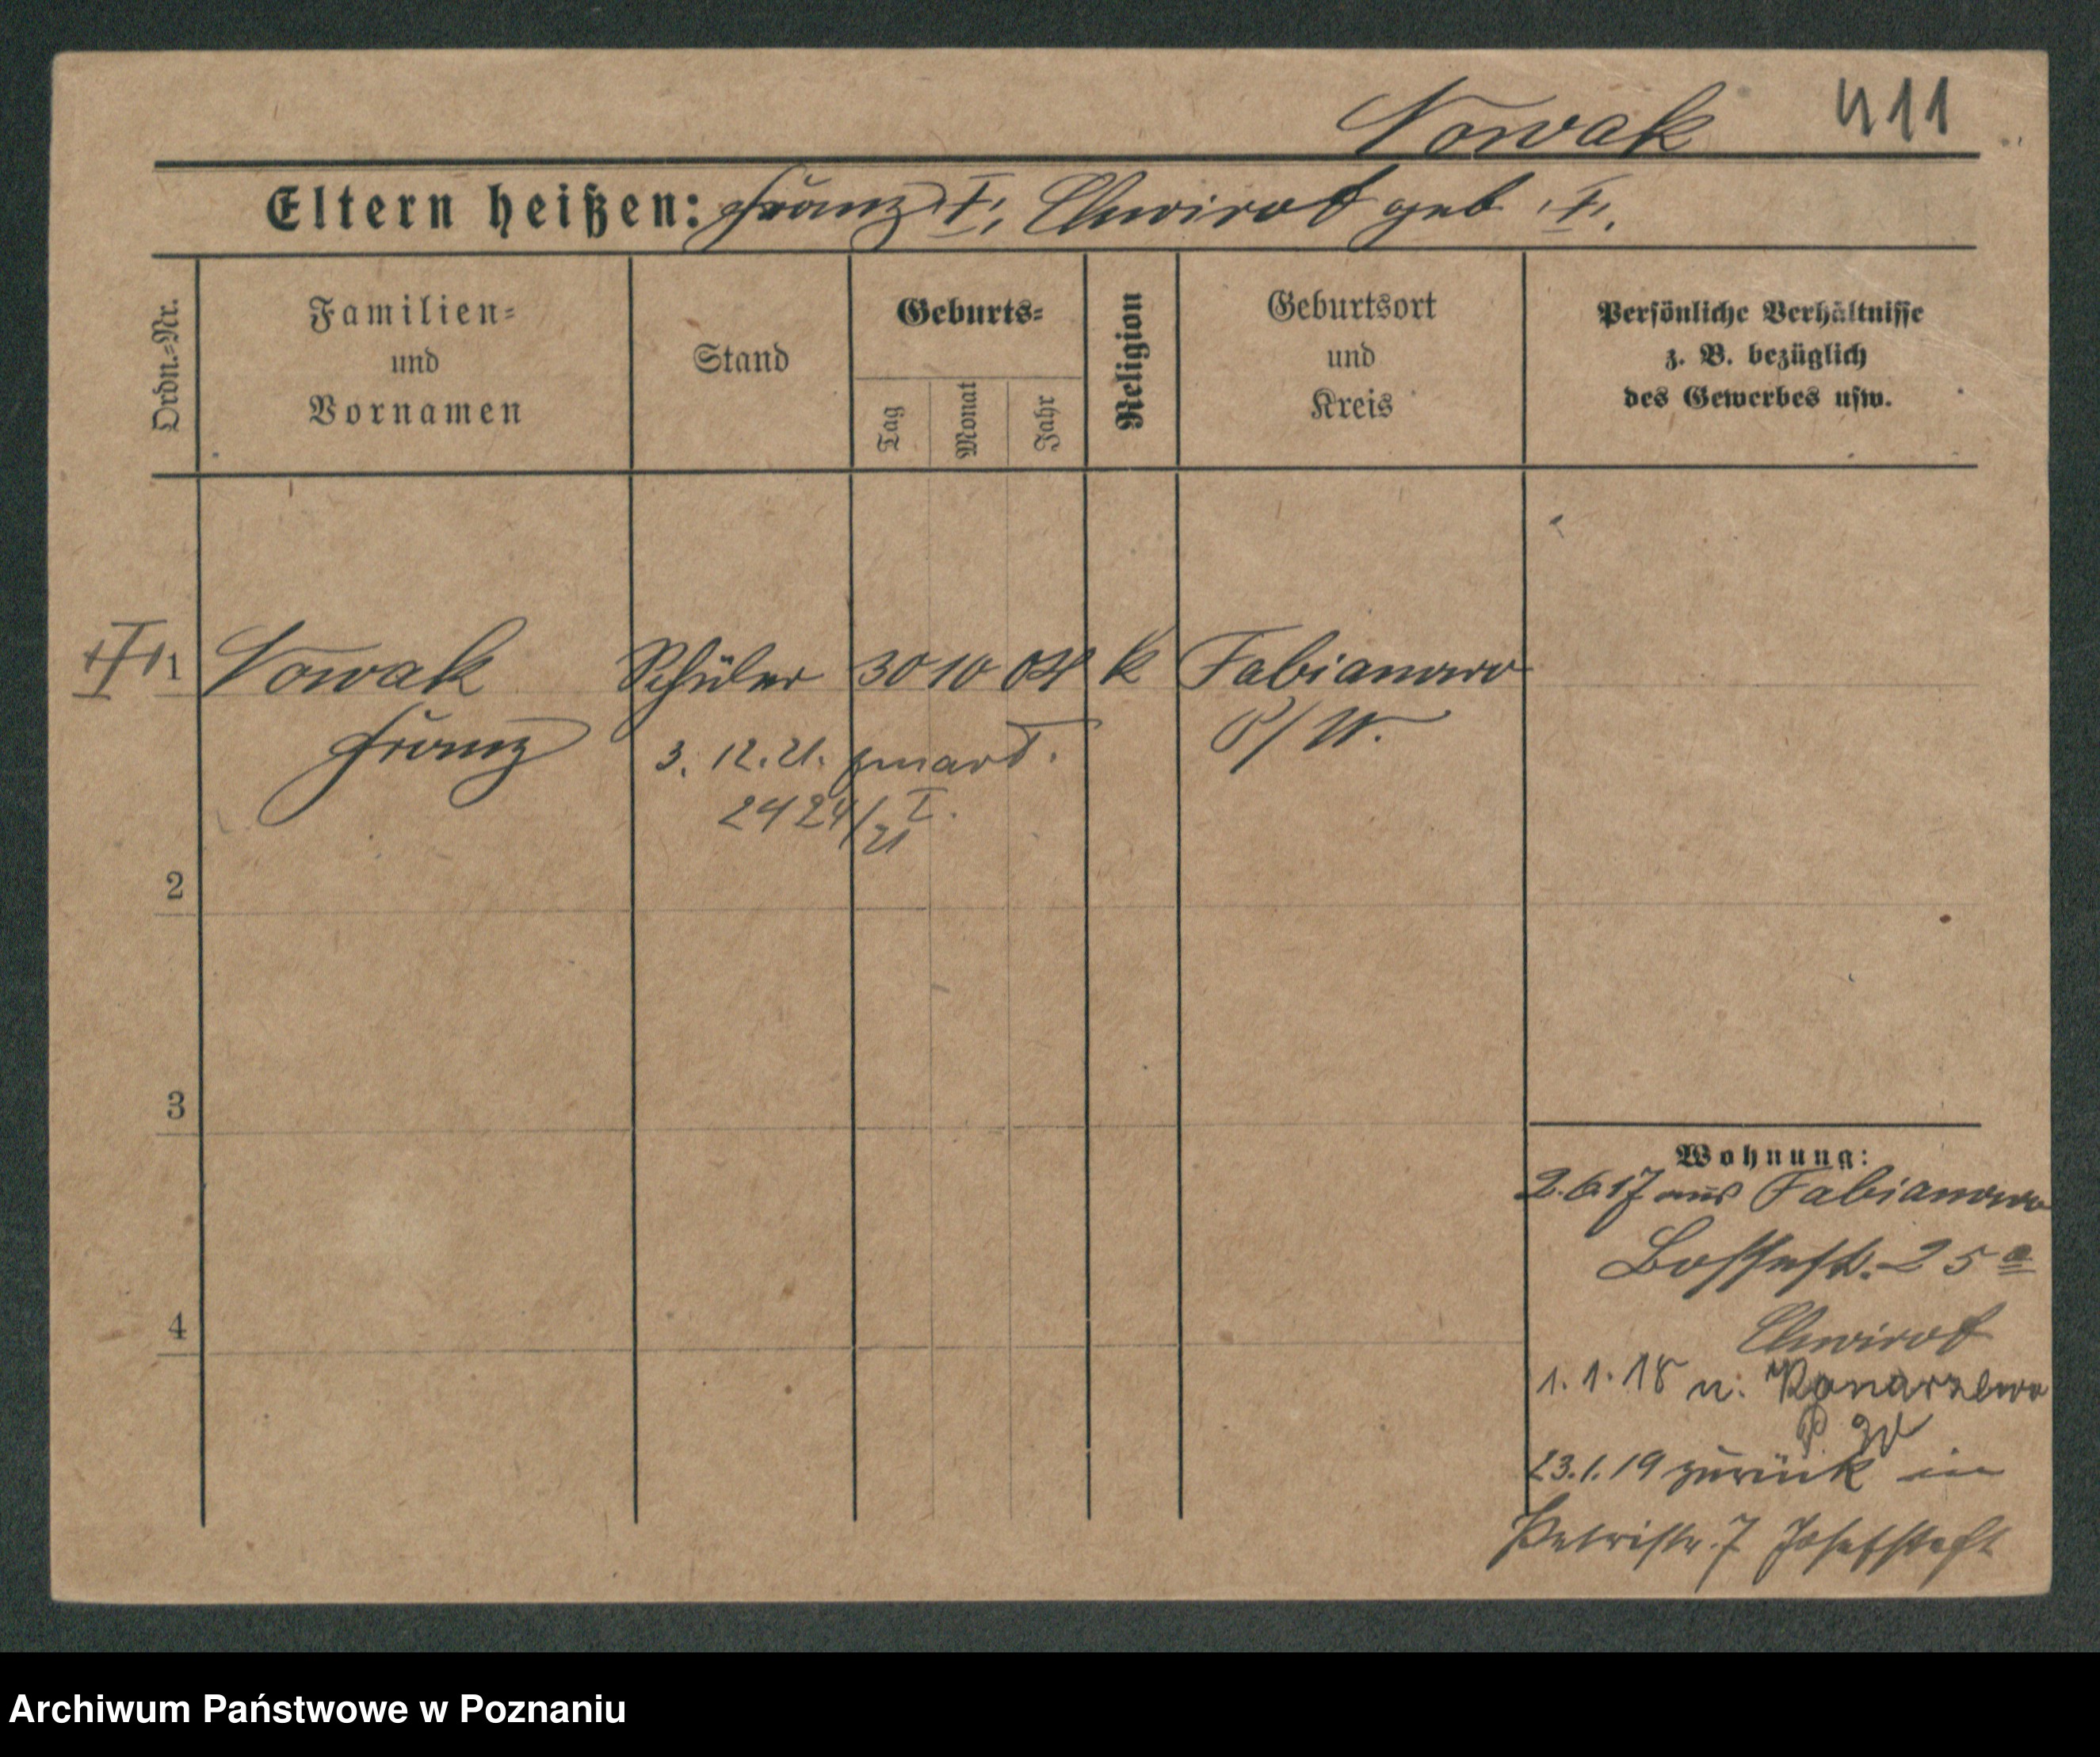 Nowak 411
Eltern heißen: Franz I, Chwirot geb I.
Ordn.-Nr.
Familien-
und
Vornamen
Stand
Geburts-
Tag
Monat
Jahr
Religion
Geburtsort
und
Kreis
Persönliche Verhältnisse
z. B. bezüglich
des Gewerbes usw.
1 Nowak Schüler 30 10 04 k Fabianowo
Franz P/W.
3. 12. 21.
2424/21 I.
2
3
4
Wohnung:
2.6.17 aus Fabianowo
25 a
Chwirot
1. 1. 18 n.
P W
23.1.19 zurück in
Petristr. 7 Josefstift
Archiwum Państwowe w Poznaniu